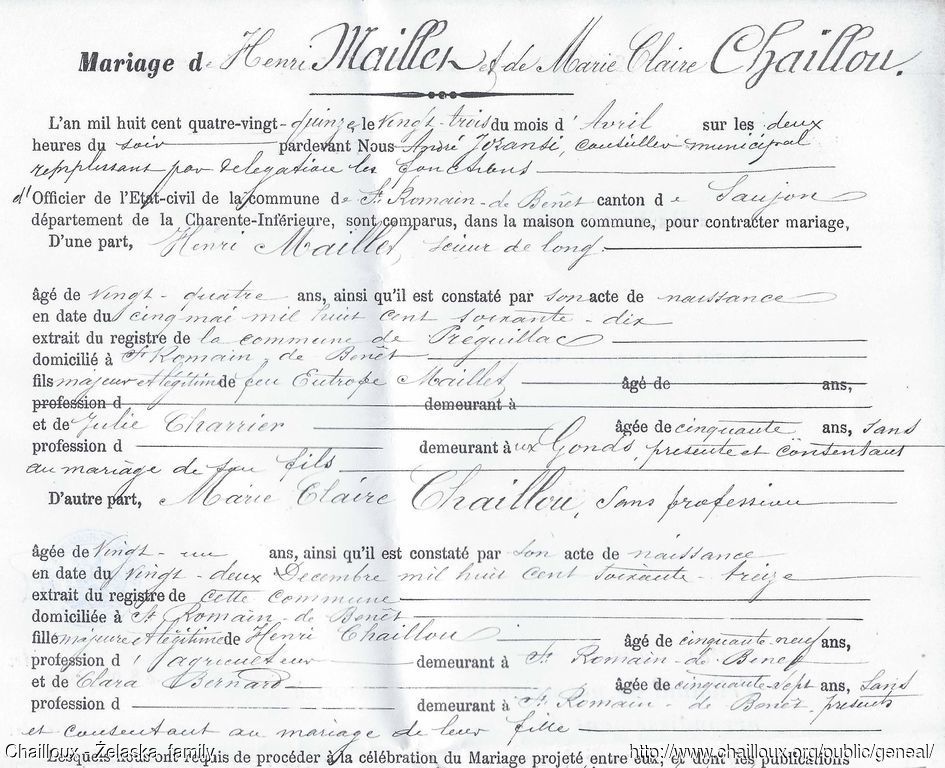 Mariage de Henri Maillet et de Marie Claire Chaillou.
L'an mil huit cent quatre-vingt-quinze, le vingt-trois du mois d'Avril sur les deux
heures du soir pardevant Nous André, conseiller municipal
remplissant par délégation les fonctions
d'Officier de l'Etat-civil de la commune de St Romain-de-Benêt canton de Saujon
département de la Charente-Inférieure, sont comparus, dans la maison commune, pour contracter mariage,
D'une part, Henri Maillet, scieur de long.
âgé de vingt-quatre ans, ainsi qu'il est constaté par son acte de naissance
en date du cinq mai mil huit cent soixante-dix
extrait du registre de la commune de Préguillac
domicilié à St Romain-de-Benêt
fils majeur et légitime de feu Eutrope Maillet, âgé de ans,
profession d demeurant à
et de Julie Charrier âgée de cinquante ans, sans
profession d demeurant aux Gonds, présente et consentant
au mariage de son fils
D'autre part, Marie Claire Chaillou, sans profession
âgée de vingt-un ans, ainsi qu'il est constaté par son acte de naissance
en date du vingt-deux Décembre mil huit cent soixante-treize
extrait du registre de cette commune
domiciliée à St Romain-de-Benêt
fille majeure et légitime de Henri Chaillou âgé de cinquante-neuf ans,
profession d'agriculteur demeurant à St Romain-de-Benet
et de Clara Bernard âgée de cinquante-sept ans, sans
profession d demeurant à St Romain-de-Benêt, présents
et consentant au mariage de leur fille
Chailloux - Żelaska family http://www.chailloux.org/public/geneal/
Lesquels nous ont requis de procéder à la célébration du Mariage projeté entre eux, et dont les publications